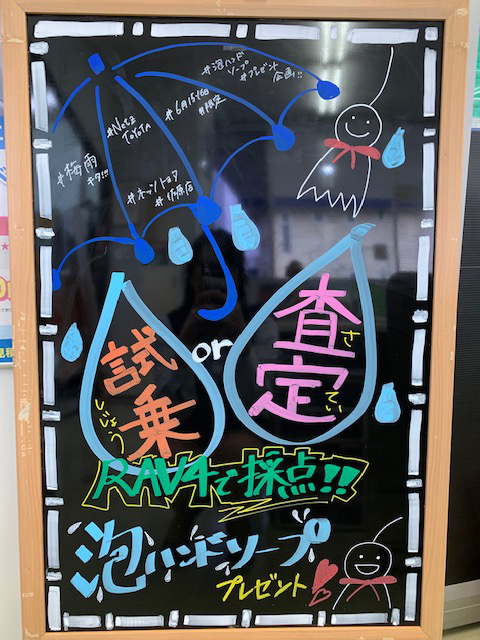 #梅雨
キタ!!!
#Netz
TOYOTA
#6月15,16日
#限定
#泡ハンド
ソープ
#プレゼント
企画!!
#ネッツトヨタ
試乗
しじょう
or
査定
さてい
RAV4で採点!!
泡ハンドソープ
プレゼント